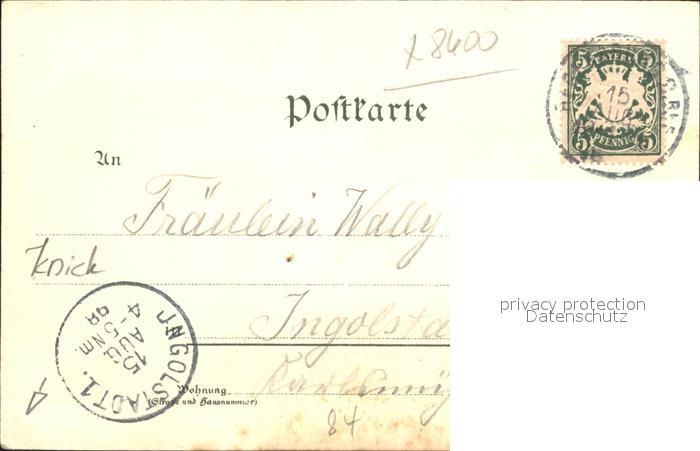 x 8400
5 BAYERN 5
15
AUG
5 PFENNIG 5
Postkarte
An
Fräulein Wally
Knick
Ingolsta
privacy protection
Datenschutz
INGOLSTADT 1.
15
AUG
4-5 Nm
98
Wohnung
(Straße und Hausnummer)
84